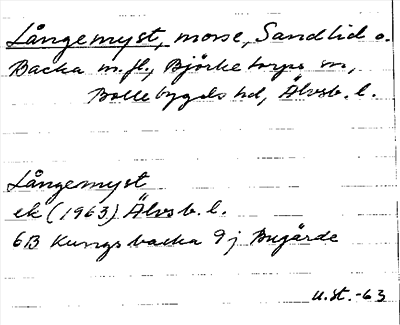 Långemyst, mosse, Sandlid o.
Backa m.fl., Björketorps sn,
Bollebygds hd, Älvsb. l.
Långemyst
ek (1963) Älvsb. l.
6B Kungsbacka 9j Bugärde
U.St. -63